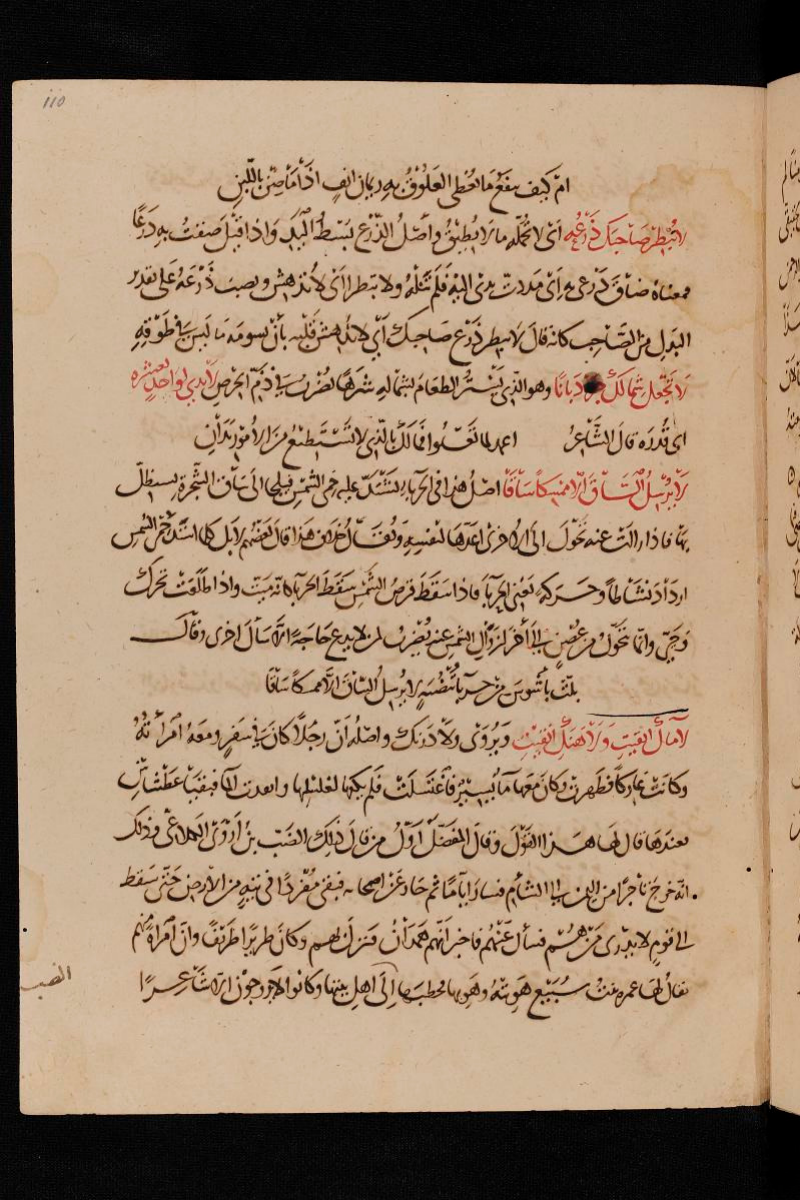 110
ام كيف ينفع ما تعطي العلوق به ريمان انف اذا ما ضن باللبن
لا تبطر صاحبك ذرعه اي لا تحمله ما لا يطيق واصل الذرع بسط اليد واذا قيل ضقت به ذرعا
فمعناه ضاق ذرعي به اي مددت يدي اليه فلم تنله ولا تبطر اي لا تدهش ونصب ذرعه على تقدير
البدل من الصاحب كانه قال لا تبطر ذرع صاحبك اي لا تدهش قلبه بأن تسومه ما ليس في طوقه
لا تجعل شمالك جردبانا وهو الذي يستر الطعام بشماله شرها يضرب في ذم الحرص لا يدي لواحد بعشره
اي قدره قال الشاعر اعمد لما تعلوا فما لك بالذي لا تستطيع من الامور يدان
لا يرسل الساق الا ممسكا ساقا اصل هذا في الحرباء يشتد عليه حمى الشمس فيلجا الى ساق الشجرة يستظل
بها فاذا زالت عنه تحول الى الاخرى اعدها لنفسه ويقال بخلاف هذا قال بعضهم لا بل كلما اشتد حمى الشمس
ازداد نشاطا وحركة يعني الحربا فاذا سقط قرص الشمس سقط الحربا كانه ميت واذا طلعت تحرك
وحيي وانما تحول من غصن الى اخر لزوال الشمس عنه يضرب لمن لا يدع حاجة الا سال اخرى وقال
بلت باشوس من حربا تنضبه لا يرسل الساق الا ممسكا ساقا
لا ماءك ابقيت ولا حرك انقيت ويروى ولا درنك واصله ان رجلا كان في سفر ومعه امراته
وكانت عاركا فطهرت وكان معهما ما يسير فاغتسلت فلم يكفها لغسلها وانفدت الما فبقيا عطشانين
فعندها قال لها هذا القول وقال المفضل اول من قال ذلك الضب بن اروى الكلاعي وذلك
انه خرج تاجرا من اليمن الى الشام فسار اياما ثم حاد عن اصحابه فبقي مفردا في تيه من الارض حتى سقط
الى قوم لا يدري من هم فسأل عنهم فاخبر انهم همدان فنزل بهم وكان طريرا ظريفا وان امراة منهم
يقال لها عمرة بنت سبيع هويته وهويها فخطبها الى اهل بيتها وكانوا لا يزوجون الا شاعرا
الضب